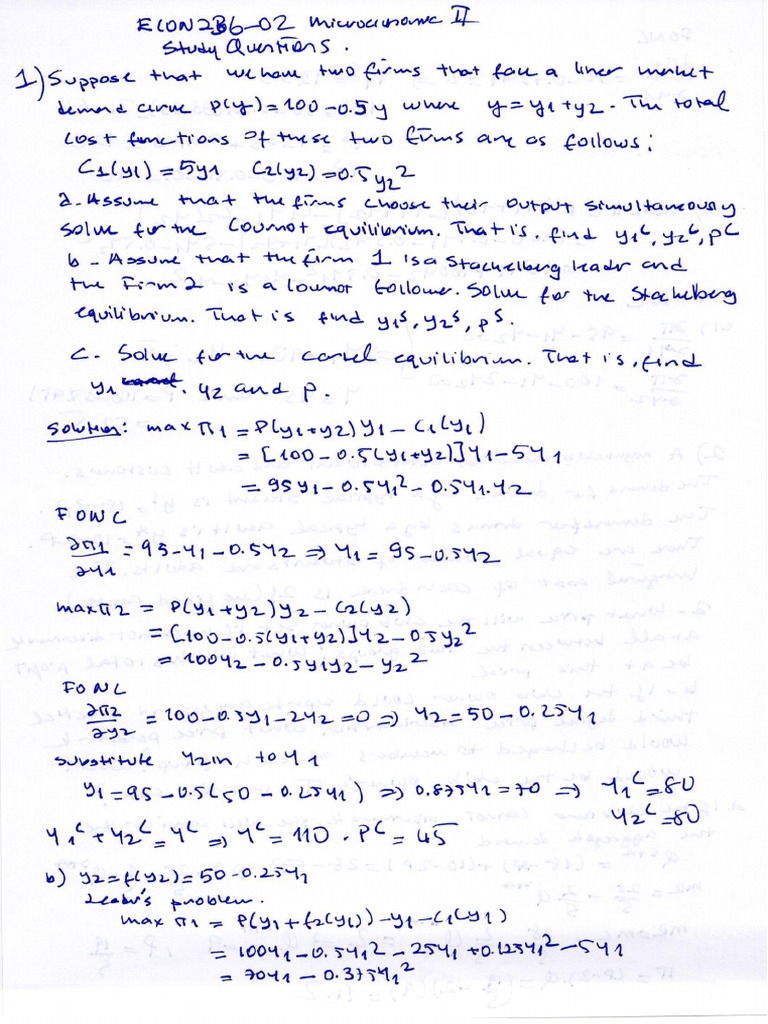 ECON2B6-02 Microeconomic II
Study Questions.
1) Suppose that we have two firms that face a liner market
demand curve P(y)=100-0.5y where y=y1+y2. The total
cost functions of these two firms are as follows:
C1(y1)=5y1 C2(y2)=0.5y2²
a- Assume that the firms choose their output simultaneously
solve for the Cournot equilibrium. That is, find y1ᶜ, y2ᶜ, pᶜ
b - Assume that the firm 1 is a Stackelberg leader and
the Firm 2 is a Cournot follower. Solve for the Stackelberg
equilibrium. That is find y1ˢ, y2ˢ, pˢ.
c. Solve for the cartel equilibrium. That is, find
y1, y2 and p.
Solution: max π1 = P(y1+y2)y1 - C1(y1)
= [100-0.5(y1+y2)]y1-5y1
= 95y1-0.5y1²-0.5y1.y2
FONC
∂π1/∂y1 = 95-y1-0.5y2 ⇒ y1=95-0.5y2
max π2 = P(y1+y2)y2 - C2(y2)
= [100-0.5(y1+y2)]y2-0.5y2²
= 100y2-0.5y1y2-y2²
FONC
∂π2/∂y2 = 100-0.5y1-2y2=0 ⇒ y2=50-0.25y1
substitute y2 in to y1
y1=95-0.5(50-0.25y1) ⇒ 0.875y1=70 ⇒ y1ᶜ=80
y2ᶜ=80
y1ᶜ+y2ᶜ=yᶜ ⇒ yᶜ=110 . Pᶜ=45
b) y2=f(y2)=50-0.25y1
Leader's problem.
max π1 = P(y1+f2(y1))-y1-C1(y1)
= 100y1-0.5y1²-25y1+0.125y1²-5y1
= 70y1-0.375y1²